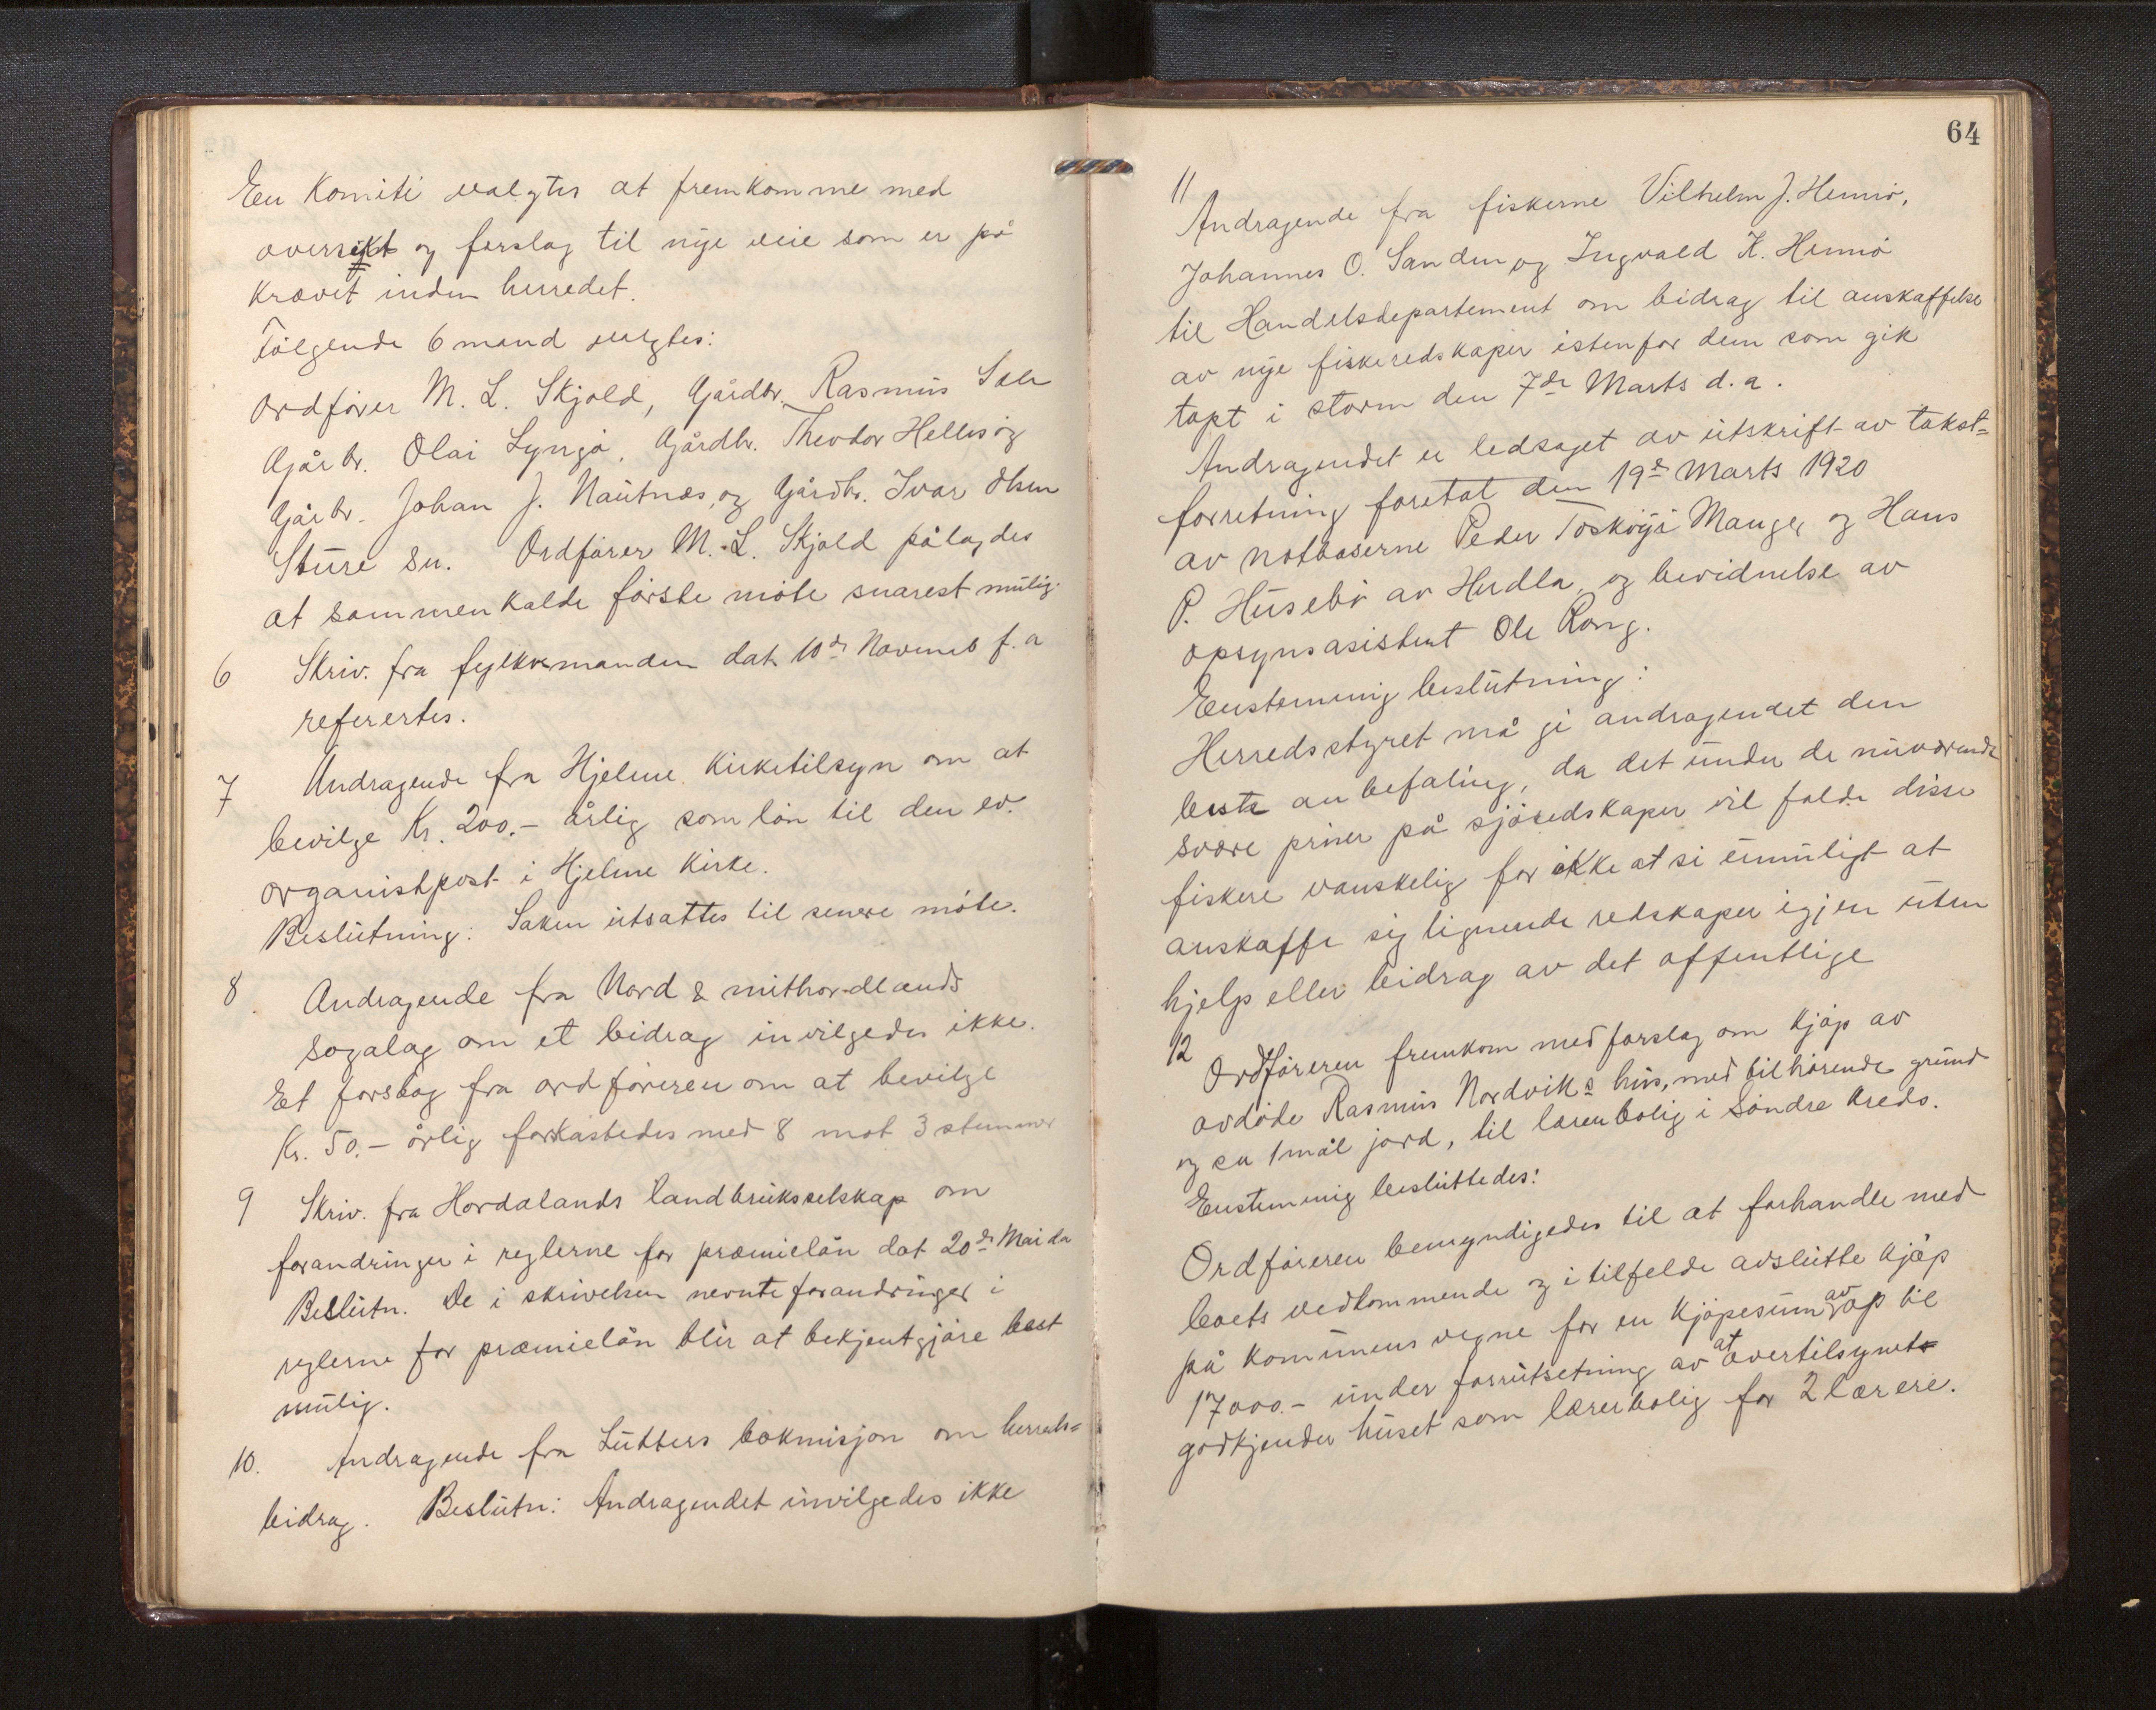 En Komite valgtes at fremkomme med
oversikt og forslag til nye veie som er på
krævet inden herredet.
Følgende 6 mand valgtes:
Ordfører M. L. Skjold, Gårdbr. Rasmus Sæle
Gårbr. Olai Lyngø, Gårdbr. Theodor Hellesøg
Gårbr. Johan J. Nautnæs, og Gårdbr. Ivar Olsen
Sture sn. Ordfører M. L. Skjold pålagdes
at sammenkalde første møte snarest mulig.
6 Skriv. fra fylkesmanden dat. 10de Novemb f. a
referertes.
7 Andragende fra Hjelme Kirketilsyn om at
bevilge Kr. 200.- årlig som løn til den ev.
organistpost i Hjelme Kirke.
Beslutning: Saken utsattes til senere møte.
8 Andragende fra Nord & mithordlands
sogalag om et bidrag invilgedes ikke.
Et forslag fra ordføreren om at bevilge
Kr. 50.- årlig forkastedes med 8 mot 3 stemmer
9 Skriv. fra Hordalands landbruksselskap om
forandringer i reglerne for præmielån dat 20de Mai da
Beslutn. De i skrivelsen nevnte forandringer i
reglerne for præmielån blir at bekjentgjøre best
mulig.
10. Andragende fra Lutters bokmisjon om herreds=
bidrag. Beslutn: Andragendet invilgedes ikke
64
11
Andragende fra fiskerne Vilhelm J. Hernø,
Johannes O. Sanden og Ingvald K. Hernø
til Handelsdepartement om bidrag til anskaffelse
av nye fiskeredskaper istenfor dem som gik
tapt i storm den 7de Marts d. a.
Andragendet er ledsaget av utskrift av takst=
forretning foretat den 19de Marts 1920
av notbaserne Peder Toskøyi Manger og Hans
P. Husebø av Herdla, og bevidnelse av
opsynsasistent Ole Rong.
Enstemmig beslutning:
Herredsstyret må gi andragendet den
beste anbefaling, da det under de nuværende
svære priser på sjøredskaper vil falde disse
fiskere vanskelig for ikke at si umuligt at
anskaffe sig lignende redskaper igjen uten
hjelp eller bidrag av det offentlige
12 Ordføreren fremkom med forslag om kjøp av
avdøde Rasmus Nordviks hus, med tilhørende grund
og ca 1 mål jord, til lærerbolig i Søndre Kreds.
Enstemmig besluttedes:
Ordføreren bemyndigedes til at forhandle med
boets vedkommende og i tilfelde avslutte kjøp
på komunens vegne for en kjøpesum av op til
17000.- under forrutsetning av at overtilsynet
godkjender huset som lærerbolig for 2 lærere.